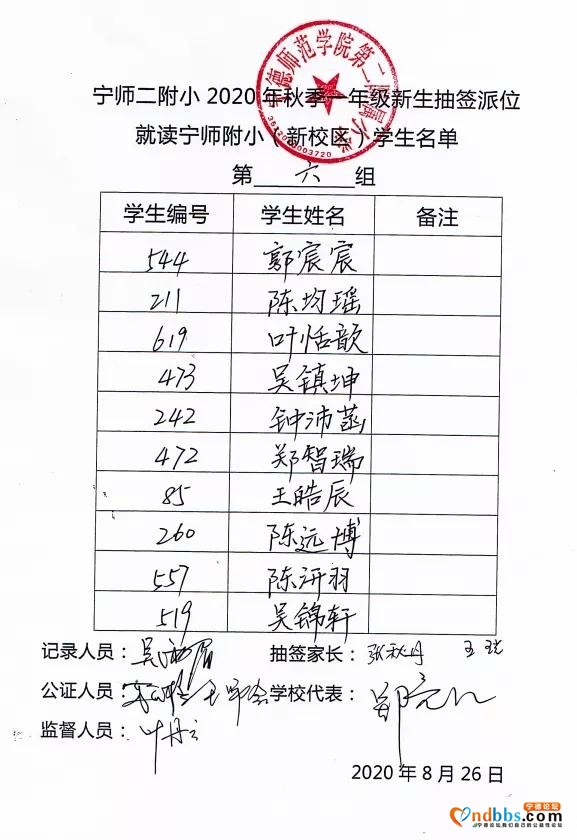 宁德师范学院第二附属小学
3512010003720
宁师二附小2020年秋季一年级新生抽签派位
就读宁师附小（新校区）学生名单
第 六 组
学生编号 学生姓名 备注
544 郭宸宸
211 陈均瑶
619 叶恬歆
473 吴镇坤
242 钟沛菡
472 郑智瑞
85 王皓辰
260 陈远博
557 陈汧羽
519 吴锦轩
记录人员： 抽签家长：张秋月
公证人员： 学校代表：
监督人员：
2020年8月26日
宁德论坛
ndbbs.com
宁德论坛我们自己的公益性论坛